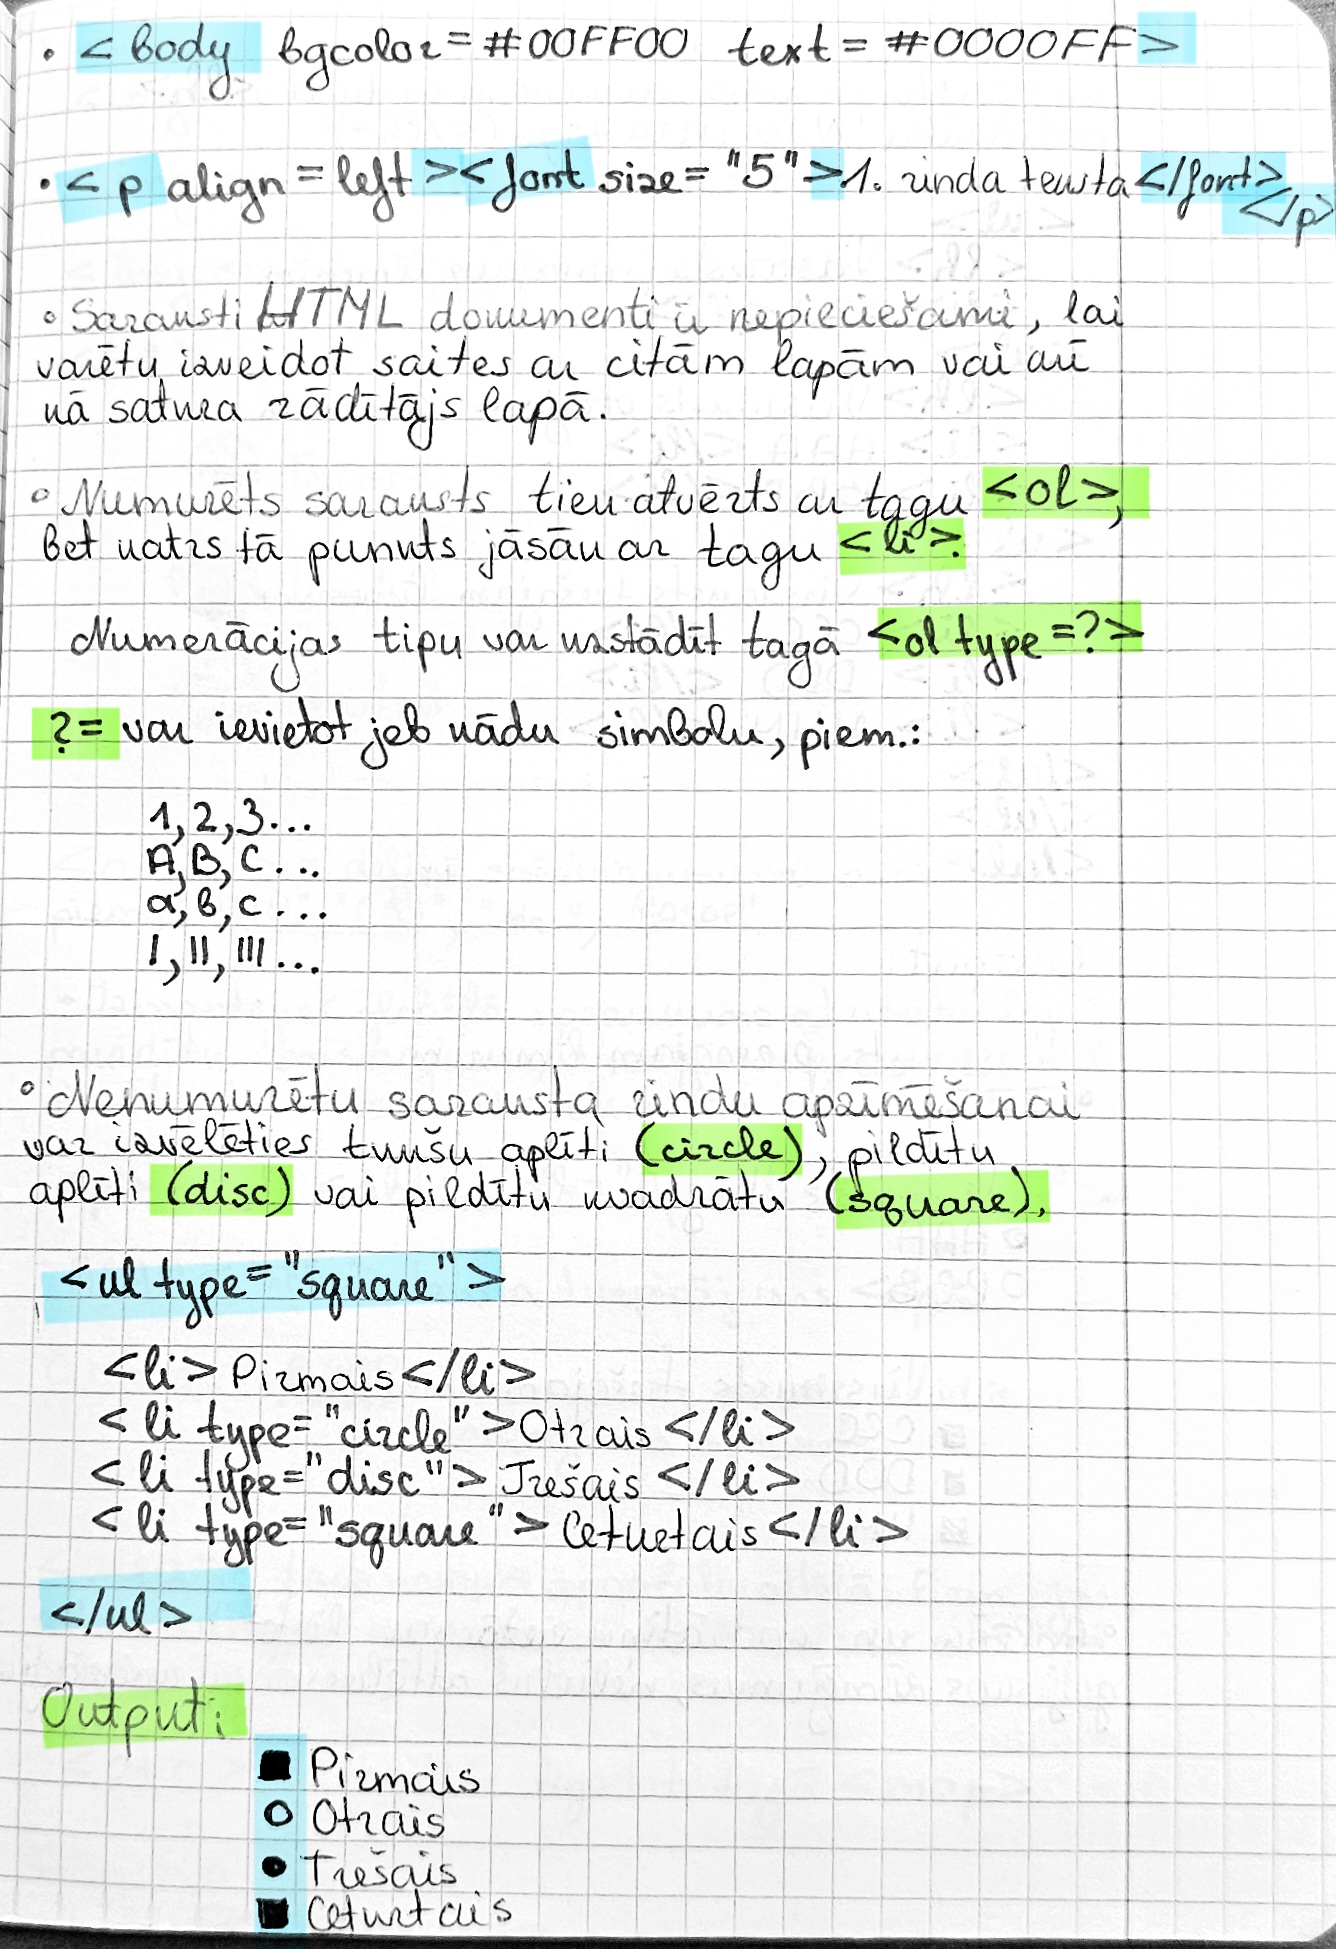 • <body bgcolor=#00FF00 text=#0000FF>
• <p align=left><font size="5">1. rinda teksta</font>
</p>
◦ Saraksti HTML dokumentā ir nepieciešami, lai
varētu izveidot saites ar citām lapām vai arī
kā satura rādītājs lapā.
◦ Numurēts saraksts tiek atvērts ar tagu <ol>,
bet katrs tā punkts jāsāk ar tagu <li>.
Numerācijas tipu var uzstādīt tagā <ol type=?>
?= var ievietot jeb kādu simbolu, piem.:
1, 2, 3...
A, B, C...
a, b, c...
I, II, III...
◦ Nenumurētu saraksta rindu apzīmēšanai
var izvēlēties tukšu aplīti (circle), pildītu
aplīti (disc) vai pildītu kvadrātu (square).
<ul type="square">
<li>Pirmais</li>
<li type="circle">Otrais</li>
<li type="disc">Trešais</li>
<li type="square">Ceturtais</li>
</ul>
Output:
■ Pirmais
○ Otrais
● Trešais
■ Ceturtais